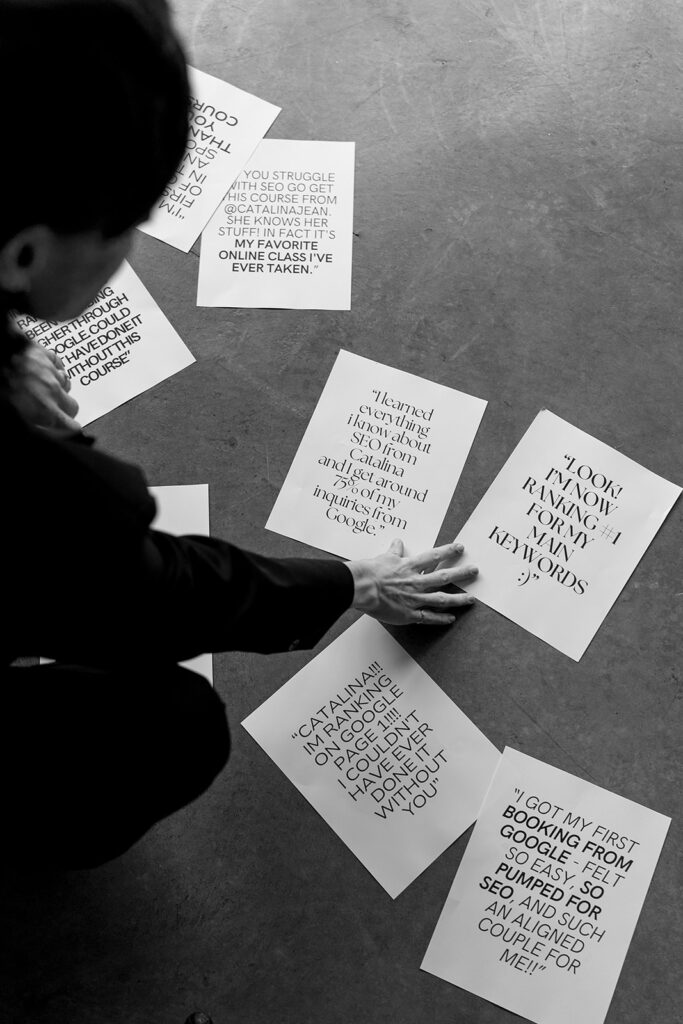 “I'M
IN
OF
AN
YOU
YOU STRUGGLE
WITH SEO GO GET
THIS COURSE FROM
@CATALINAJEAN.
SHE KNOWS HER
STUFF! IN FACT IT'S
MY FAVORITE
ONLINE CLASS I'VE
EVER TAKEN.”
BEEN
THROUGH
COULD
HAVE DONE IT
WITHOUT THIS
COURSE”
“I learned
everything
i know about
SEO from
Catalina
and I get around
75% of my
inquiries from
Google.”
“LOOK!
I'M NOW
RANKING #1
FOR MY
MAIN
KEYWORDS
:)”
“CATALINA!!!
IM RANKING
ON GOOGLE
PAGE 1!!!!
I COULDN'T
HAVE EVER
DONE IT
WITHOUT
YOU”
“I GOT MY FIRST
BOOKING FROM
GOOGLE - FELT
SO EASY, SO
PUMPED FOR
SEO, AND SUCH
AN ALIGNED
COUPLE FOR
ME!!”